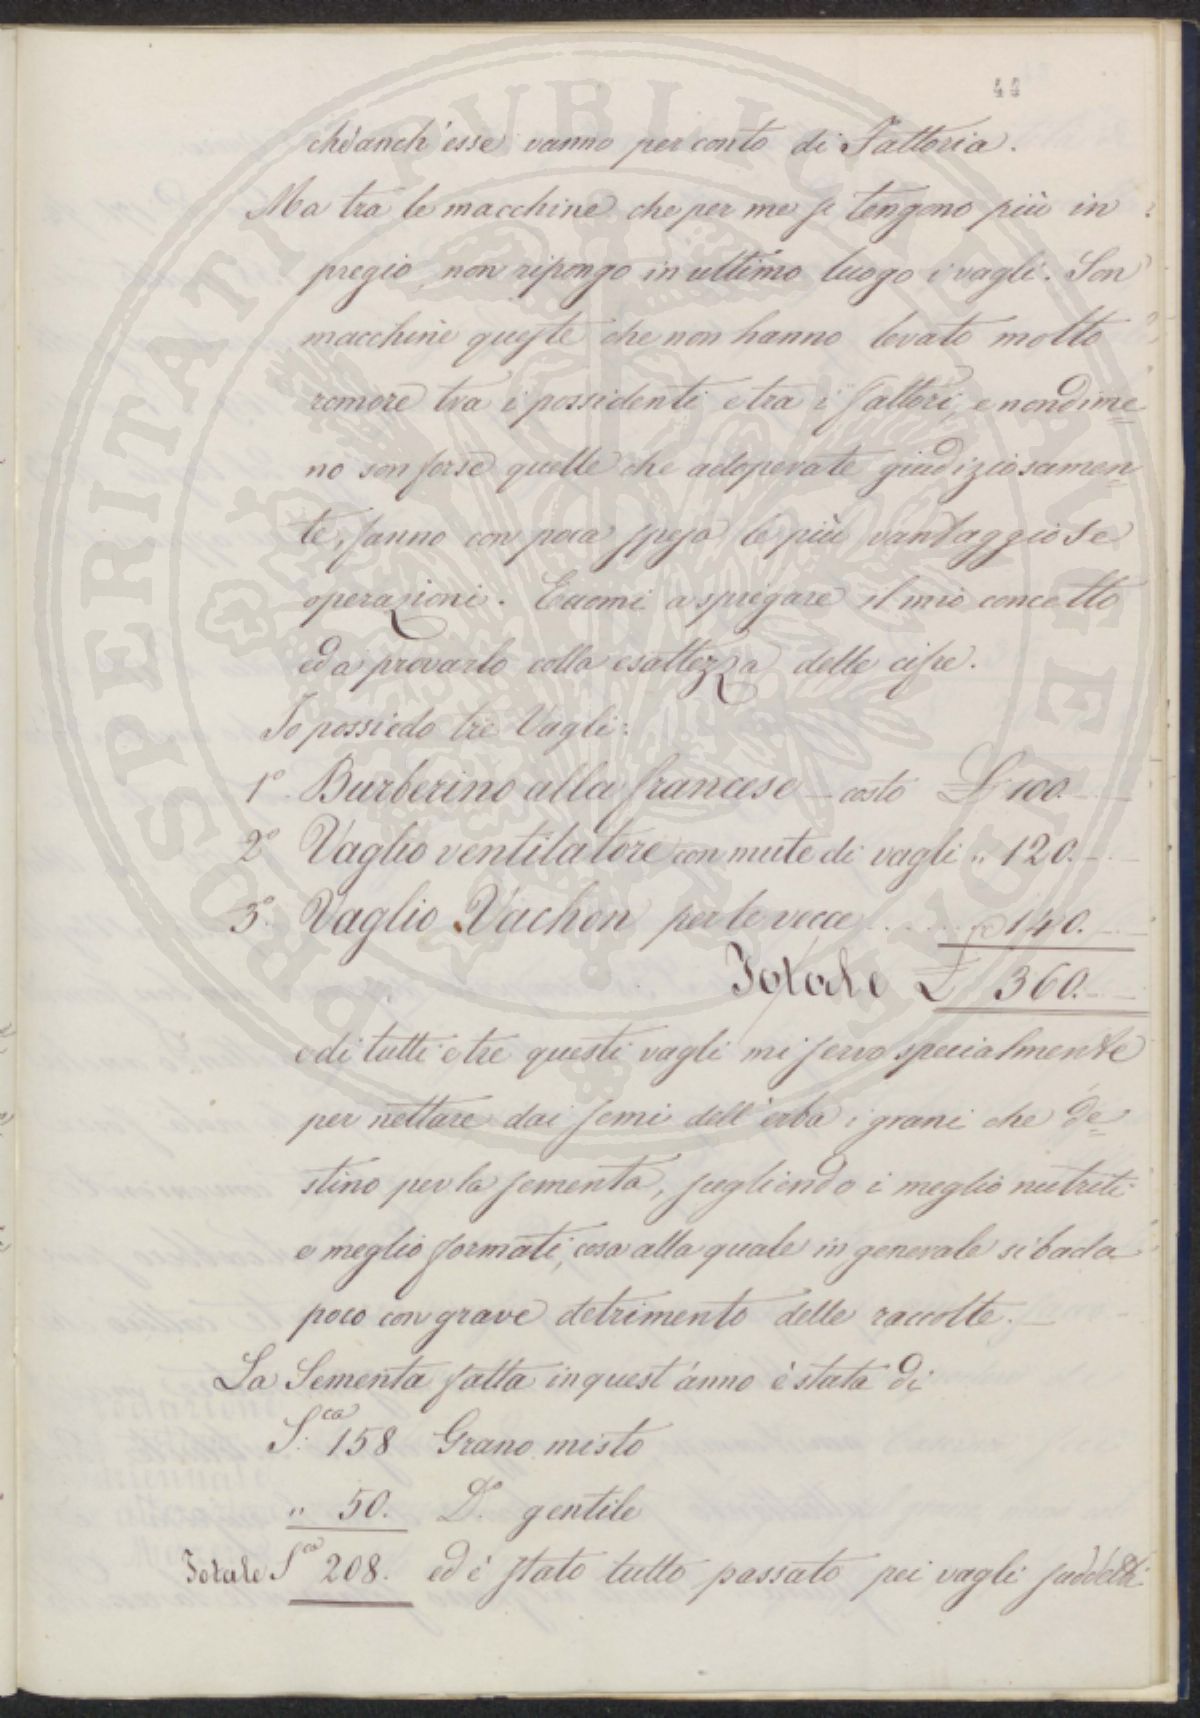 44
ch'anch'esse vanno per conto di Fattoria.
Ma tra le macchine che per me si tengono più in
pregio, non ripongo in ultimo luogo i vagli. Son
macchine queste che non hanno levato molto
romore tra i possidenti e tra i fattori, e nondime=
no son forse quelle che adoperate giudiziosamen=
te, fanno con poca spesa le più vantaggiose
operazioni. Eccomi a spiegare il mio concetto
ed a provarlo colla esattezza delle cifre.
Io possiedo tre Vagli:
1º. Burberino alla francese — costò £ 100. —
2º Vaglio ventilatore con mute di vagli " 120. —
3º. Vaglio Vachon per le vecce ..... " 140. —
Totale £ 360. —
e di tutti e tre questi vagli mi servo specialmente
per nettare dai semi dell'erba i grani che de=
stino per la sementa, scegliendo i meglio nutriti
e meglio formati, cosa alla quale in generale si bada
poco con grave detrimento delle raccolte. —
La Sementa fatta in quest'anno è stata di
S.ca 158 Grano misto
" 50. Dº. gentile
Totale S.ca 208. ed è stato tutto passato pei vagli suddetti
PROSPERITATI PUBLICAE AUGENDAE